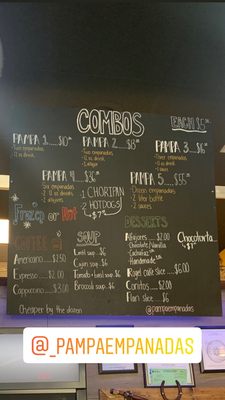 COMBOS
EACH $5
PAMPA 1......$10
- Two empanadas
- 12 oz drink
PAMPA 2......$8
- Two empanadas
- 12 oz drink
- 1 alfajor
PAMPA 3...$16
- Three empanadas
- 12 oz drink
- 1 sauces
PAMPA 4....$36
- Six empanadas
- 2 12 oz drinks
- 2 alfajores
1 CHORIPAN
2 HOTDOGS
PAMPA 5......$55
- Dozen empanadas
- 2 liter bottle
- 2 sauces
Frozen or Hot
COFFEE
Americano......$2.50
Espresso......$2.00
Cappuccino......$3.00
Cheaper by the dozen
SOUP
Lentil soup...$6
Tomato + basil soup...$6
Broccoli soup...$6
DESSERTS
Alfajores......$2.00
Chocolate/Vanilla
Handmade
Chocotorta
Rogel cake slice......$6.00
Conitos......$2.00
Flan slice......$6
@pampaempanadas
@_PAMPAEMPANADAS